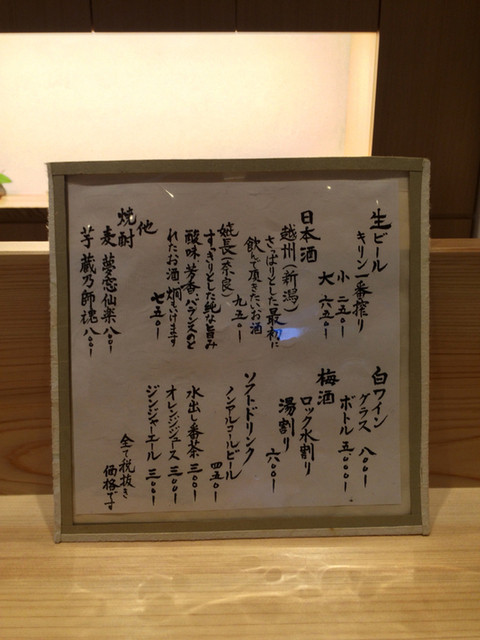 生ビール
キリン一番搾り
小 二五〇ー
大 六五〇ー
日本酒
越州(新潟)
さっぱりとした最初に
飲んで頂きたいお酒
九五〇ー
長(奈良)
すっきりとした純な旨み
酸味、芳香、バランスのと
れたお酒 燗でいけます
七五〇ー
他
焼酎
麦 夢恋仙楽 八〇〇ー
芋 蔵乃師魂 八〇〇ー
白ワイン
グラス 八〇〇ー
ボトル 五〇〇〇ー
梅酒
ロック水割り
湯割り
六〇〇ー
ソフトドリンク
ノンアルコールビール
四五〇ー
水出し番茶
三〇〇ー
オレンジジュース 三〇〇ー
ジンジャーエール 三〇〇ー
全て税抜き
価格です